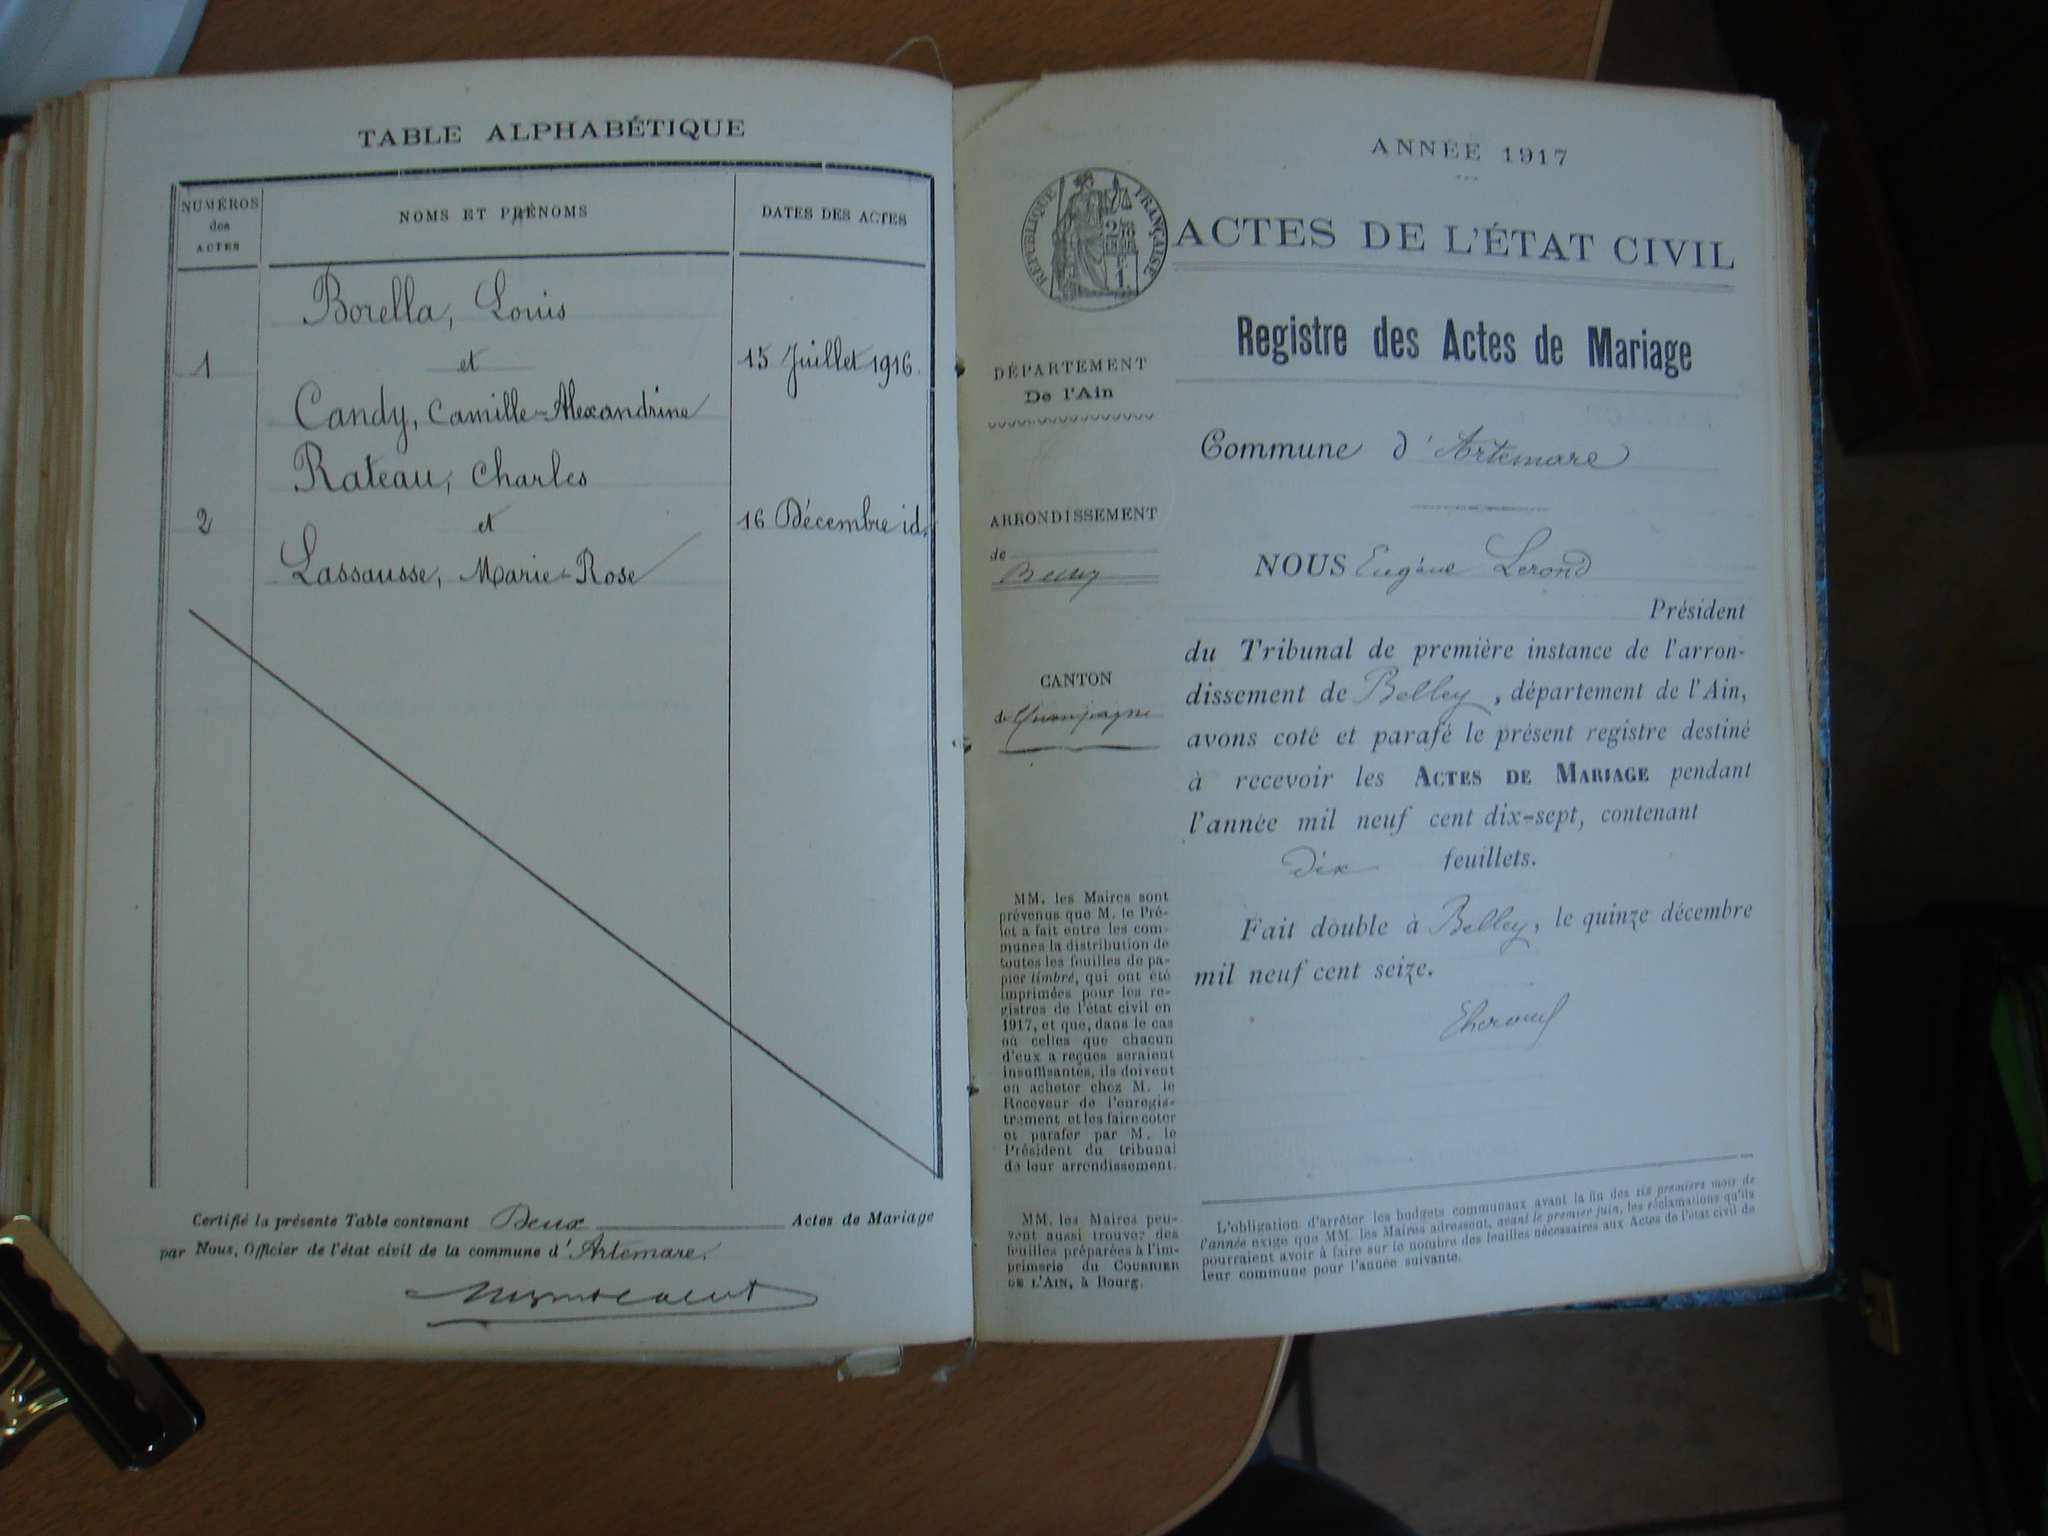 TABLE ALPHABÉTIQUE
NUMÉROS
des
ACTES
NOMS ET PRÉNOMS
DATES DES ACTES
Borella, Louis
1
et
15 Juillet 1916.
Candy, Camille-Alexandrine
Rateau, Charles
2
et
16 Décembre id.
Lassausse, Marie-Rose
Certifié la présente Table contenant Deux Actes de Mariage
par Nous, Officier de l'état civil de la commune d'Artemare.
ANNÉE 1917
RÉPUBLIQUE FRANÇAISE
ACTES DE L'ÉTAT CIVIL
Registre des Actes de Mariage
DÉPARTEMENT
De l'Ain
ARRONDISSEMENT
de
Belley
CANTON
de Champagne
MM. les Maires sont
prévenus que M. le Pré-
fet a fait entre les com-
munes la distribution de
toutes les feuilles de pa-
pier timbré, qui ont été
imprimées pour les re-
gistres de l'état civil en
1917, et que, dans le cas
où celles que chacun
d'eux a reçues seraient
insuffisantes, ils doivent
en acheter chez M. le
Receveur de l'enregis-
trement et les faire coter
et parafer par M. le
Président du tribunal
de leur arrondissement.
MM. les Maires peu-
vent aussi trouver des
feuilles préparées à l'im-
primerie du COURRIER
DE L'AIN, à Bourg.
Commune d'Artemare
NOUS Eugène Lerond
Président
du Tribunal de première instance de l'arron-
dissement de Belley, département de l'Ain,
avons coté et parafé le présent registre destiné
à recevoir les ACTES DE MARIAGE pendant
l'année mil neuf cent dix-sept, contenant
Dix feuillets.
Fait double à Belley, le quinze décembre
mil neuf cent seize.
L'obligation d'arrêter les budgets communaux avant la fin des six premiers mois de
l'année exige que MM. les Maires adressent, avant le premier juin, les réclamations qu'ils
pourraient avoir à faire sur le nombre des feuilles nécessaires aux Actes de l'état civil de
leur commune pour l'année suivante.